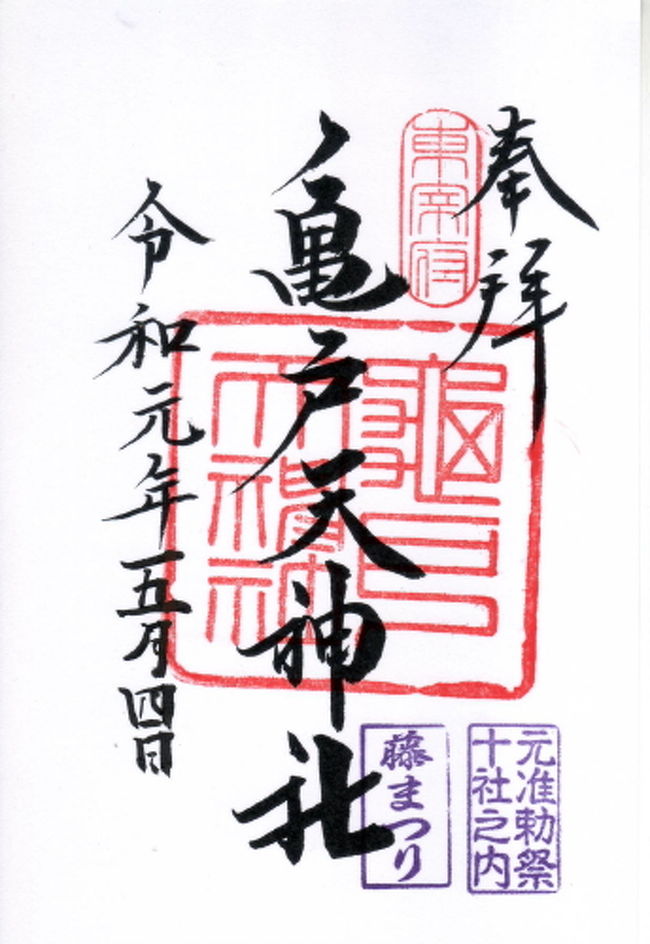 奉拝
東宰府
亀戸天神社
亀戸天神社
令和元年五月四日
元准勅祭
十社之内
藤まつり